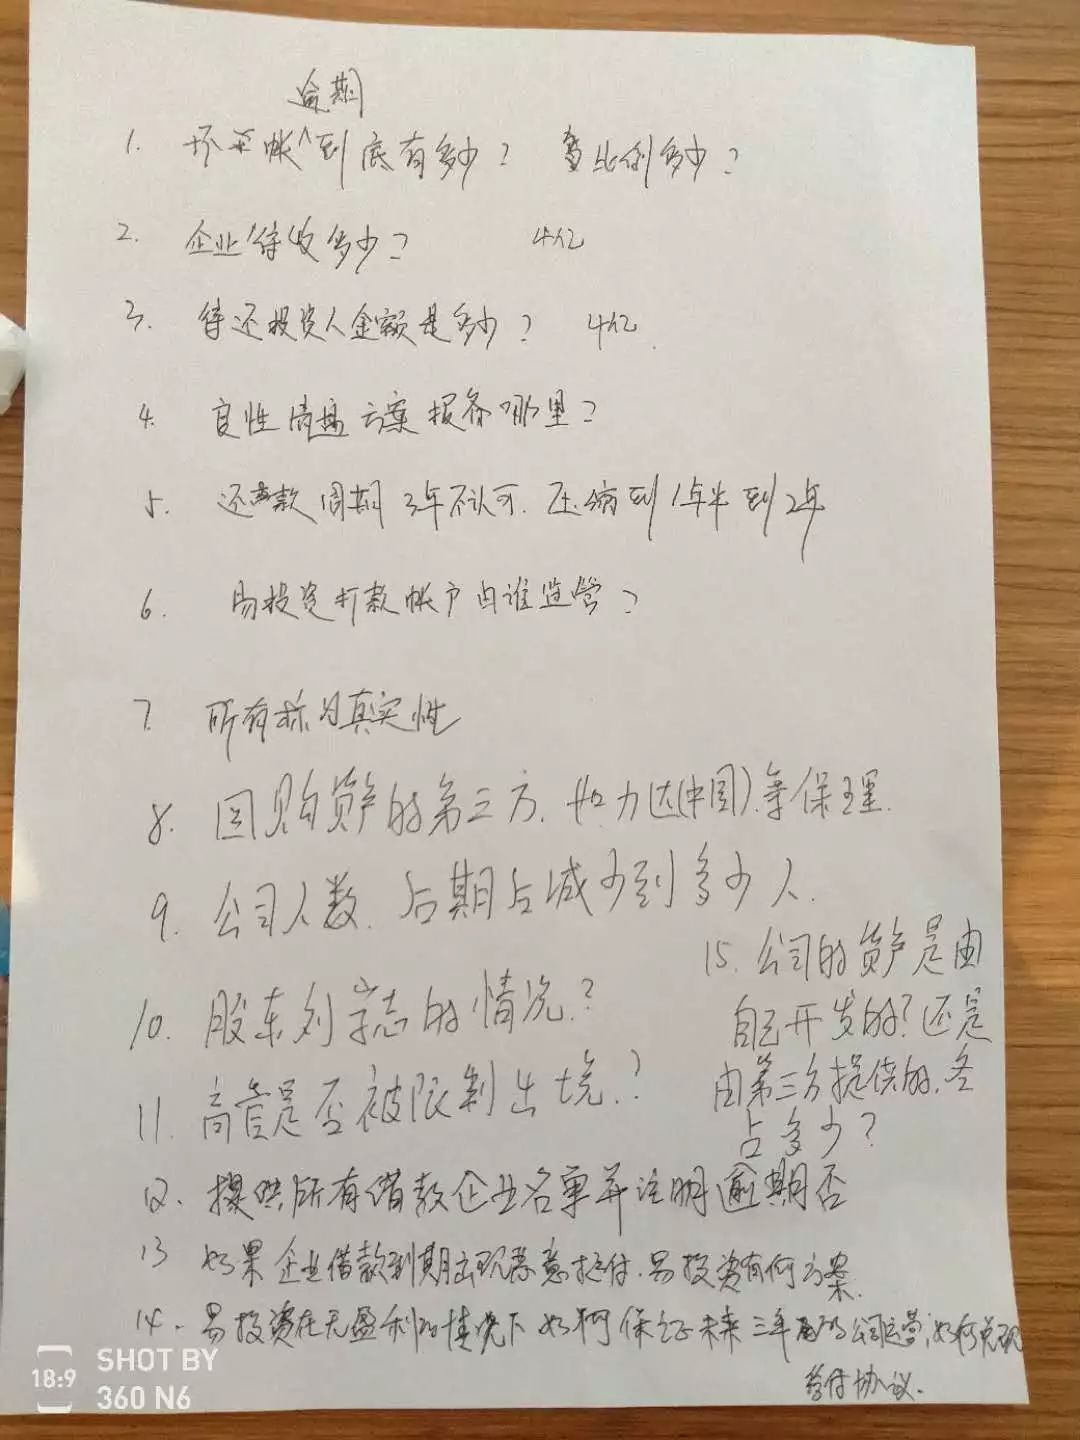 逾期
1. 坏账^到底有多少? 占比例多少?
2. 企业待收多少? 4亿
3. 待还投资人金额是多少? 4亿.
4. 良性清盘方案报备哪里?
5. 还款周期3年不认可. 压缩到1年半到2年
6. 易投资打款帐户由谁监管?
7. 所有标的真实性
8. 回购资产的第三方. 如力达(中国).等保理.
9. 公司人数. 后期后减少到多少人.
10. 股东刘学志的情况?
11. 高管是否被限制出境?
12. 提供所有借款企业名单并注明逾期否
13 如果企业借款到期出现恶意拒付. 易投资有何方案.
14. 易投资在无盈利的情况下如何保证未来三年的公司运营;如何兑现
兑付协议.
15. 公司的资产是由
自己开发的?还是
由第三方提供的.各
占多少?
SHOT BY
18:9
360 N6